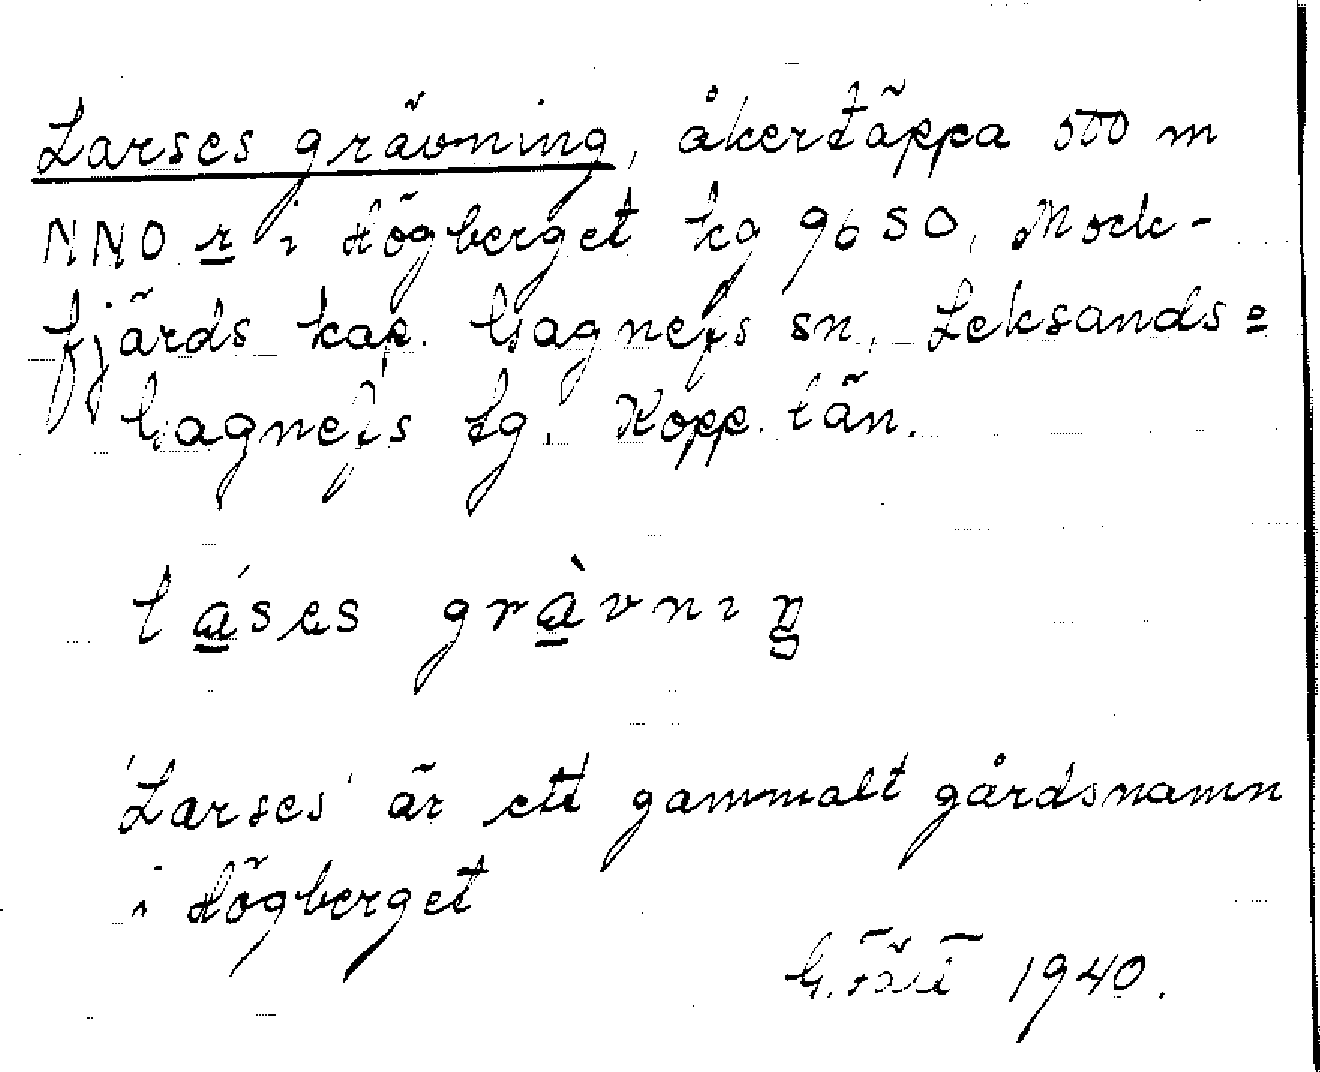 Larses grävning, åkertäppa 500 m
NNO r i Högberget kg 9650, Mock-
fjärds kap. Gagnefs sn, Leksands=
Gagnefs tg. Kopp. län.
láses gràvnıŋ
'Larses' är ett gammalt gårdsnamn
i Högberget
G. 1940.